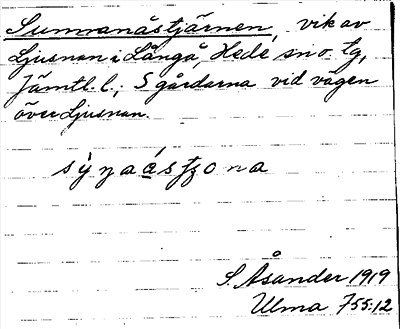 Sunnanåstjärnen, vik av
Ljusnan i Långå, Hede sn o. tg,
Jämtl. l., S gårdarna vid vägen
över Ljusnan.
S. Åsander 1919
Ulma 755:12